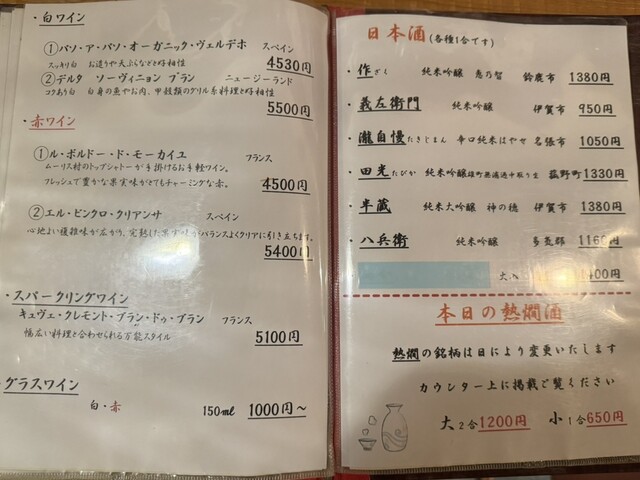 ・白ワイン
①パソ・ア・パソ・オーガニック・ヴェルデホ スペイン
スッキリ白 お造りや天ぷらなどと好相性
4530円
②デルタ ソーヴィニョン ブラン ニュージーランド
コクあり白 白身の魚やお肉、甲殻類のグリル系料理と好相性
5500円
・赤ワイン
①ル・ボルドー・ド・モーカイユ フランス
ムーリス村のトップシャトーが手掛けるお手軽ワイン。
フレッシュで豊かな果実味がとてもチャーミングな赤。
4500円
②エル・ビンクロ・クリアンサ スペイン
心地よい複雑味が広がり、完熟した果実味がバランスよくクリアに引き立ちます。
5400円
・スパークリングワイン
キュヴェ・クレモント・ブラン・ドゥ・ブラン フランス
幅広い料理と合わせられる万能スタイル
5100円
・グラスワイン
白・赤 150ml 1000円～
日本酒(各種1合です)
・作ざく 純米吟醸 恵乃智 鈴鹿市 1380円
・義左衛門 純米吟醸 伊賀市 950円
・瀧自慢たきじまん 辛口純米はやせ 名張市 1050円
・田光たびか 純米吟醸雄町無濾過中取り生 菰野町 1330円
・半蔵 純米大吟醸 神の穂 伊賀市 1380円
・八兵衛 純米吟醸 多気郡 1160円
400円
本日の熱燗酒
熱燗の銘柄は日により変更いたします
カウンター上に掲載ご覧ください
大2合1200円 小1合650円